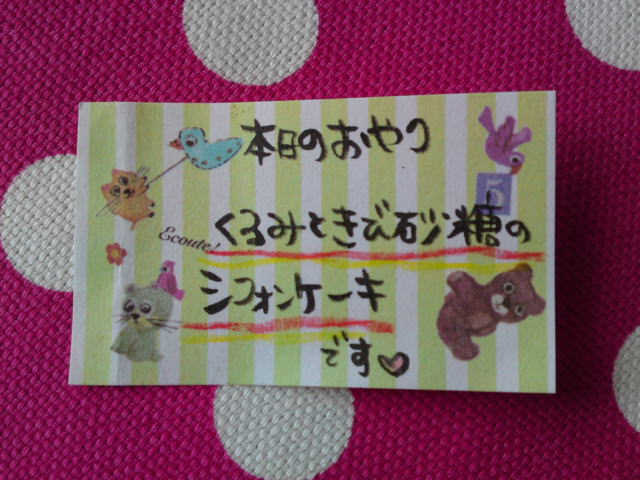 本日のおやつ
Ecoute!
くるみときび砂糖の
シフォンケーキ
です♡